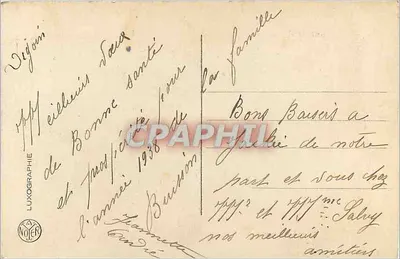 Digoin
Meilleurs Vœux
de Bonne santé
et prospérité pour
l'année 1938 de
la famille
Buisson
Jeannette
André
Bons Baisers a
de notre
part et vous chez
Mr et Mme Salvy
nos meilleurs
amitiés
LUXOGRAPHIE
NOYER
CPARHIF